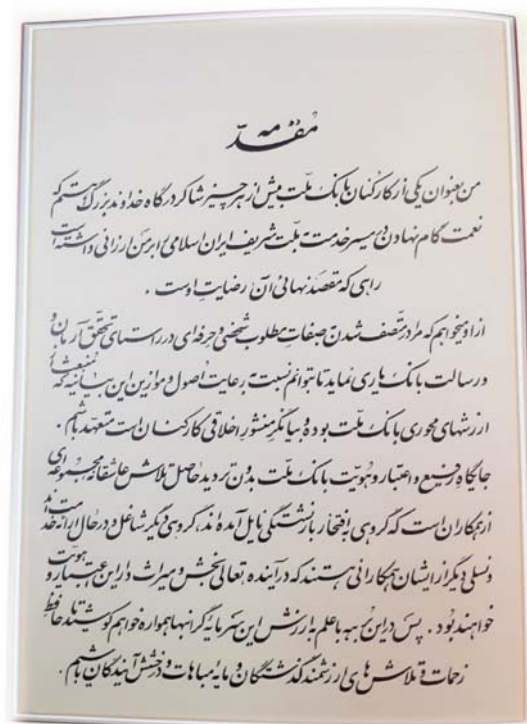 مقدمه
من بعنوان یکی از کارکنان بانک ملّت بیش از هر چیز شاکر درگاه خداوند بزرگ هستم که
نعمت گام نهادن در مسیر خدمت به ملّت شریف ایران اسلامی را بر من ارزانی داشته است
راهی که مقصد نهائی آن رضایت اوست .
از او میخواهم که مرا در متّصف شدن به صفات مطلوب شخصی و حرفه‌ای در راستای تحقّق آرمان و
و رسالت بانک یاری نماید تا بتوانم نسبت به رعایت اصول و موازین این بیانیه که منبعث از
ارزشهای محوری بانک ملّت بوده و بیانگر منشور اخلاقی کارکنان است متعهّد باشم .
جایگاه رفیع و اعتبار و هویّت بانک ملّت بدون تردید حاصل تلاش عاشقانه مجموعه‌ای
از همکاران است که گروهی به افتخار بازنشستگی نایل آمده‌اند، گروهی دیگر شاغل و در حال ارائه خدمت‌اند
و نسلی دیگر از ایشان همکارانی هستند که در آینده تعالی بخش و میراث دار این اعتبار و هویّت
خواهند بود . پس در این برهه با علم به ارزش این سرمایه گرانبها همواره خواهم کوشید تا حافظ
زحمات و تلاش های ارزشمند گذشتگان و مایه مباهات و درخشش آیندگان باشم .